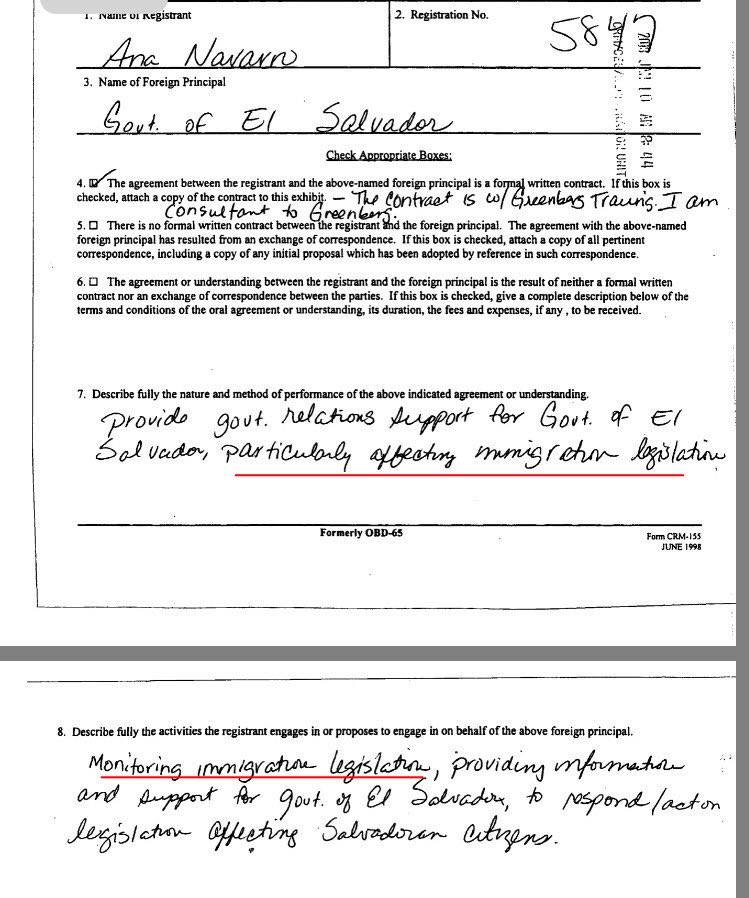 1. Name of Registrant
2. Registration No.
Ana Navarro
5847
3. Name of Foreign Principal
Govt. of El Salvador
Check Appropriate Boxes:
4. ☑ The agreement between the registrant and the above-named foreign principal is a formal written contract. If this box is
checked, attach a copy of the contract to this exhibit. – The contract is w/ Greenberg Traurig. I am
consultant to Greenberg.
5. ☐ There is no formal written contract between the registrant and the foreign principal. The agreement with the above-named
foreign principal has resulted from an exchange of correspondence. If this box is checked, attach a copy of all pertinent
correspondence, including a copy of any initial proposal which has been adopted by reference in such correspondence.
6. ☐ The agreement or understanding between the registrant and the foreign principal is the result of neither a formal written
contract nor an exchange of correspondence between the parties. If this box is checked, give a complete description below of the
terms and conditions of the oral agreement or understanding, its duration, the fees and expenses, if any , to be received.
7. Describe fully the nature and method of performance of the above indicated agreement or understanding.
Provide govt. relations support for Govt. of El
Salvador, particularly affecting immigration legislation
Formerly OBD-65
Form CRM-155
JUNE 1998
8. Describe fully the activities the registrant engages in or proposes to engage in on behalf of the above foreign principal.
Monitoring immigration legislation, providing information
and support for govt. of El Salvador, to respond/act on
legislation affecting Salvadoran citizens.